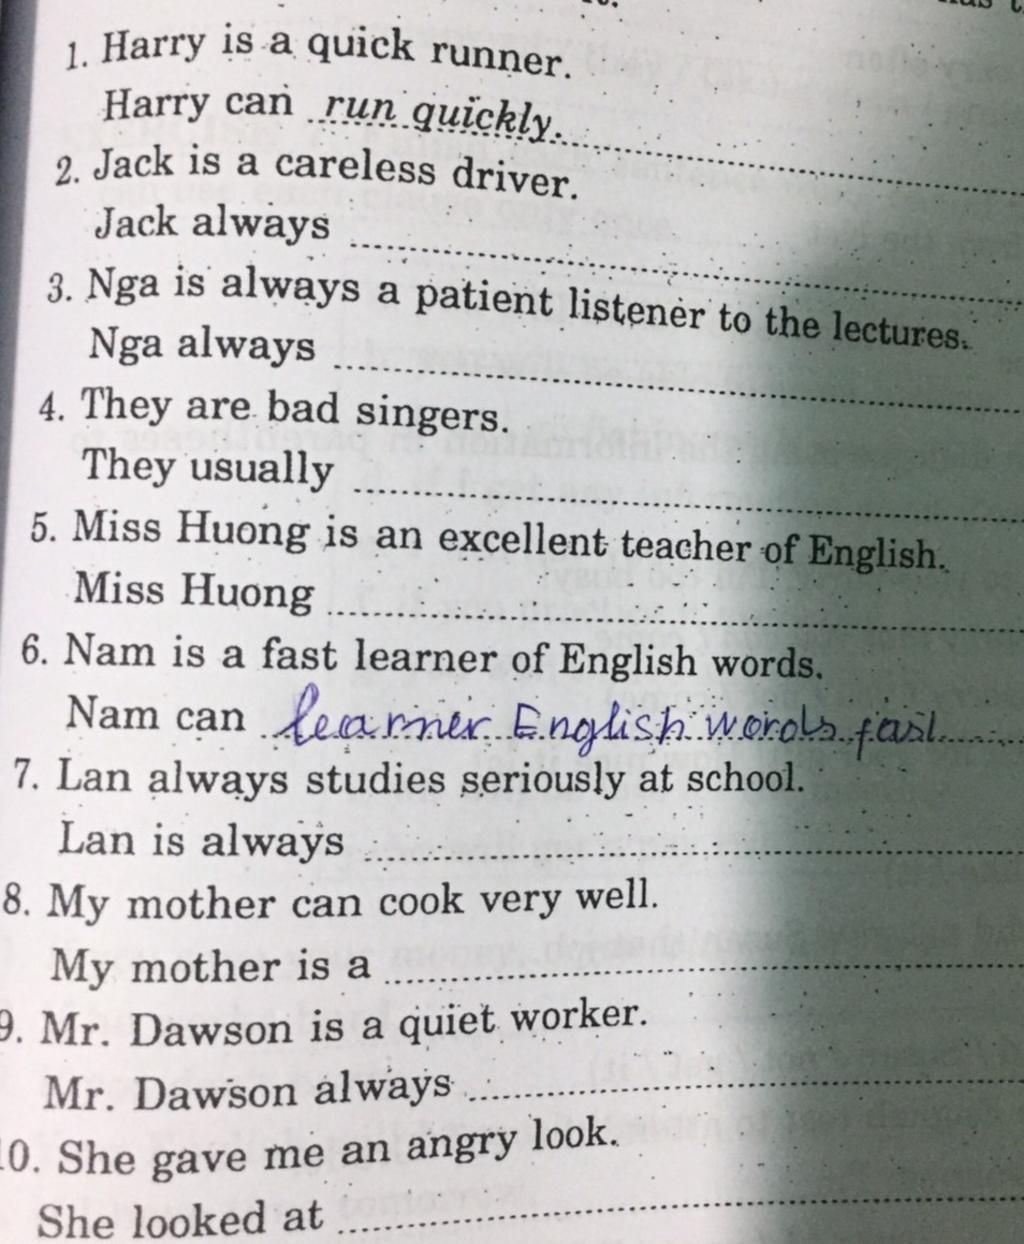 1. Harry is a quick runner.
Harry can run quickly.
2. Jack is a careless driver.
Jack always
3. Nga is always a patient listener to the lectures.
Nga always
4. They are bad singers.
They usually
5. Miss Huong is an excellent teacher of English.
Miss Huong
6. Nam is a fast learner of English words.
Nam can learner English words fast
7. Lan always studies seriously at school.
Lan is always
8. My mother can cook very well.
My mother is a
9. Mr. Dawson is a quiet worker.
Mr. Dawson always
10. She gave me an angry look.
She looked at